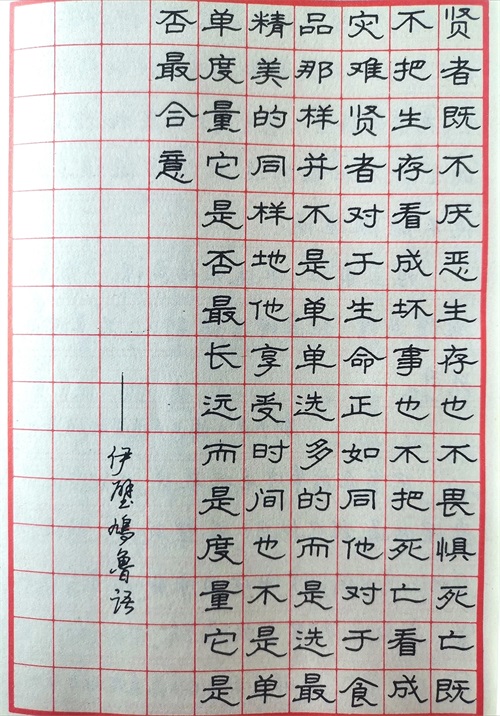 贤者既不厌恶生存也不畏惧死亡既
不把生存看成坏事也不把死亡看成
灾难贤者对于生命正如同他对于食
品那样并不是单单选多的而是选最
精美的同样地他享受时间也不是单
单度量它是否最长远而是度量它是
否最合意
——伊壁鸠鲁语